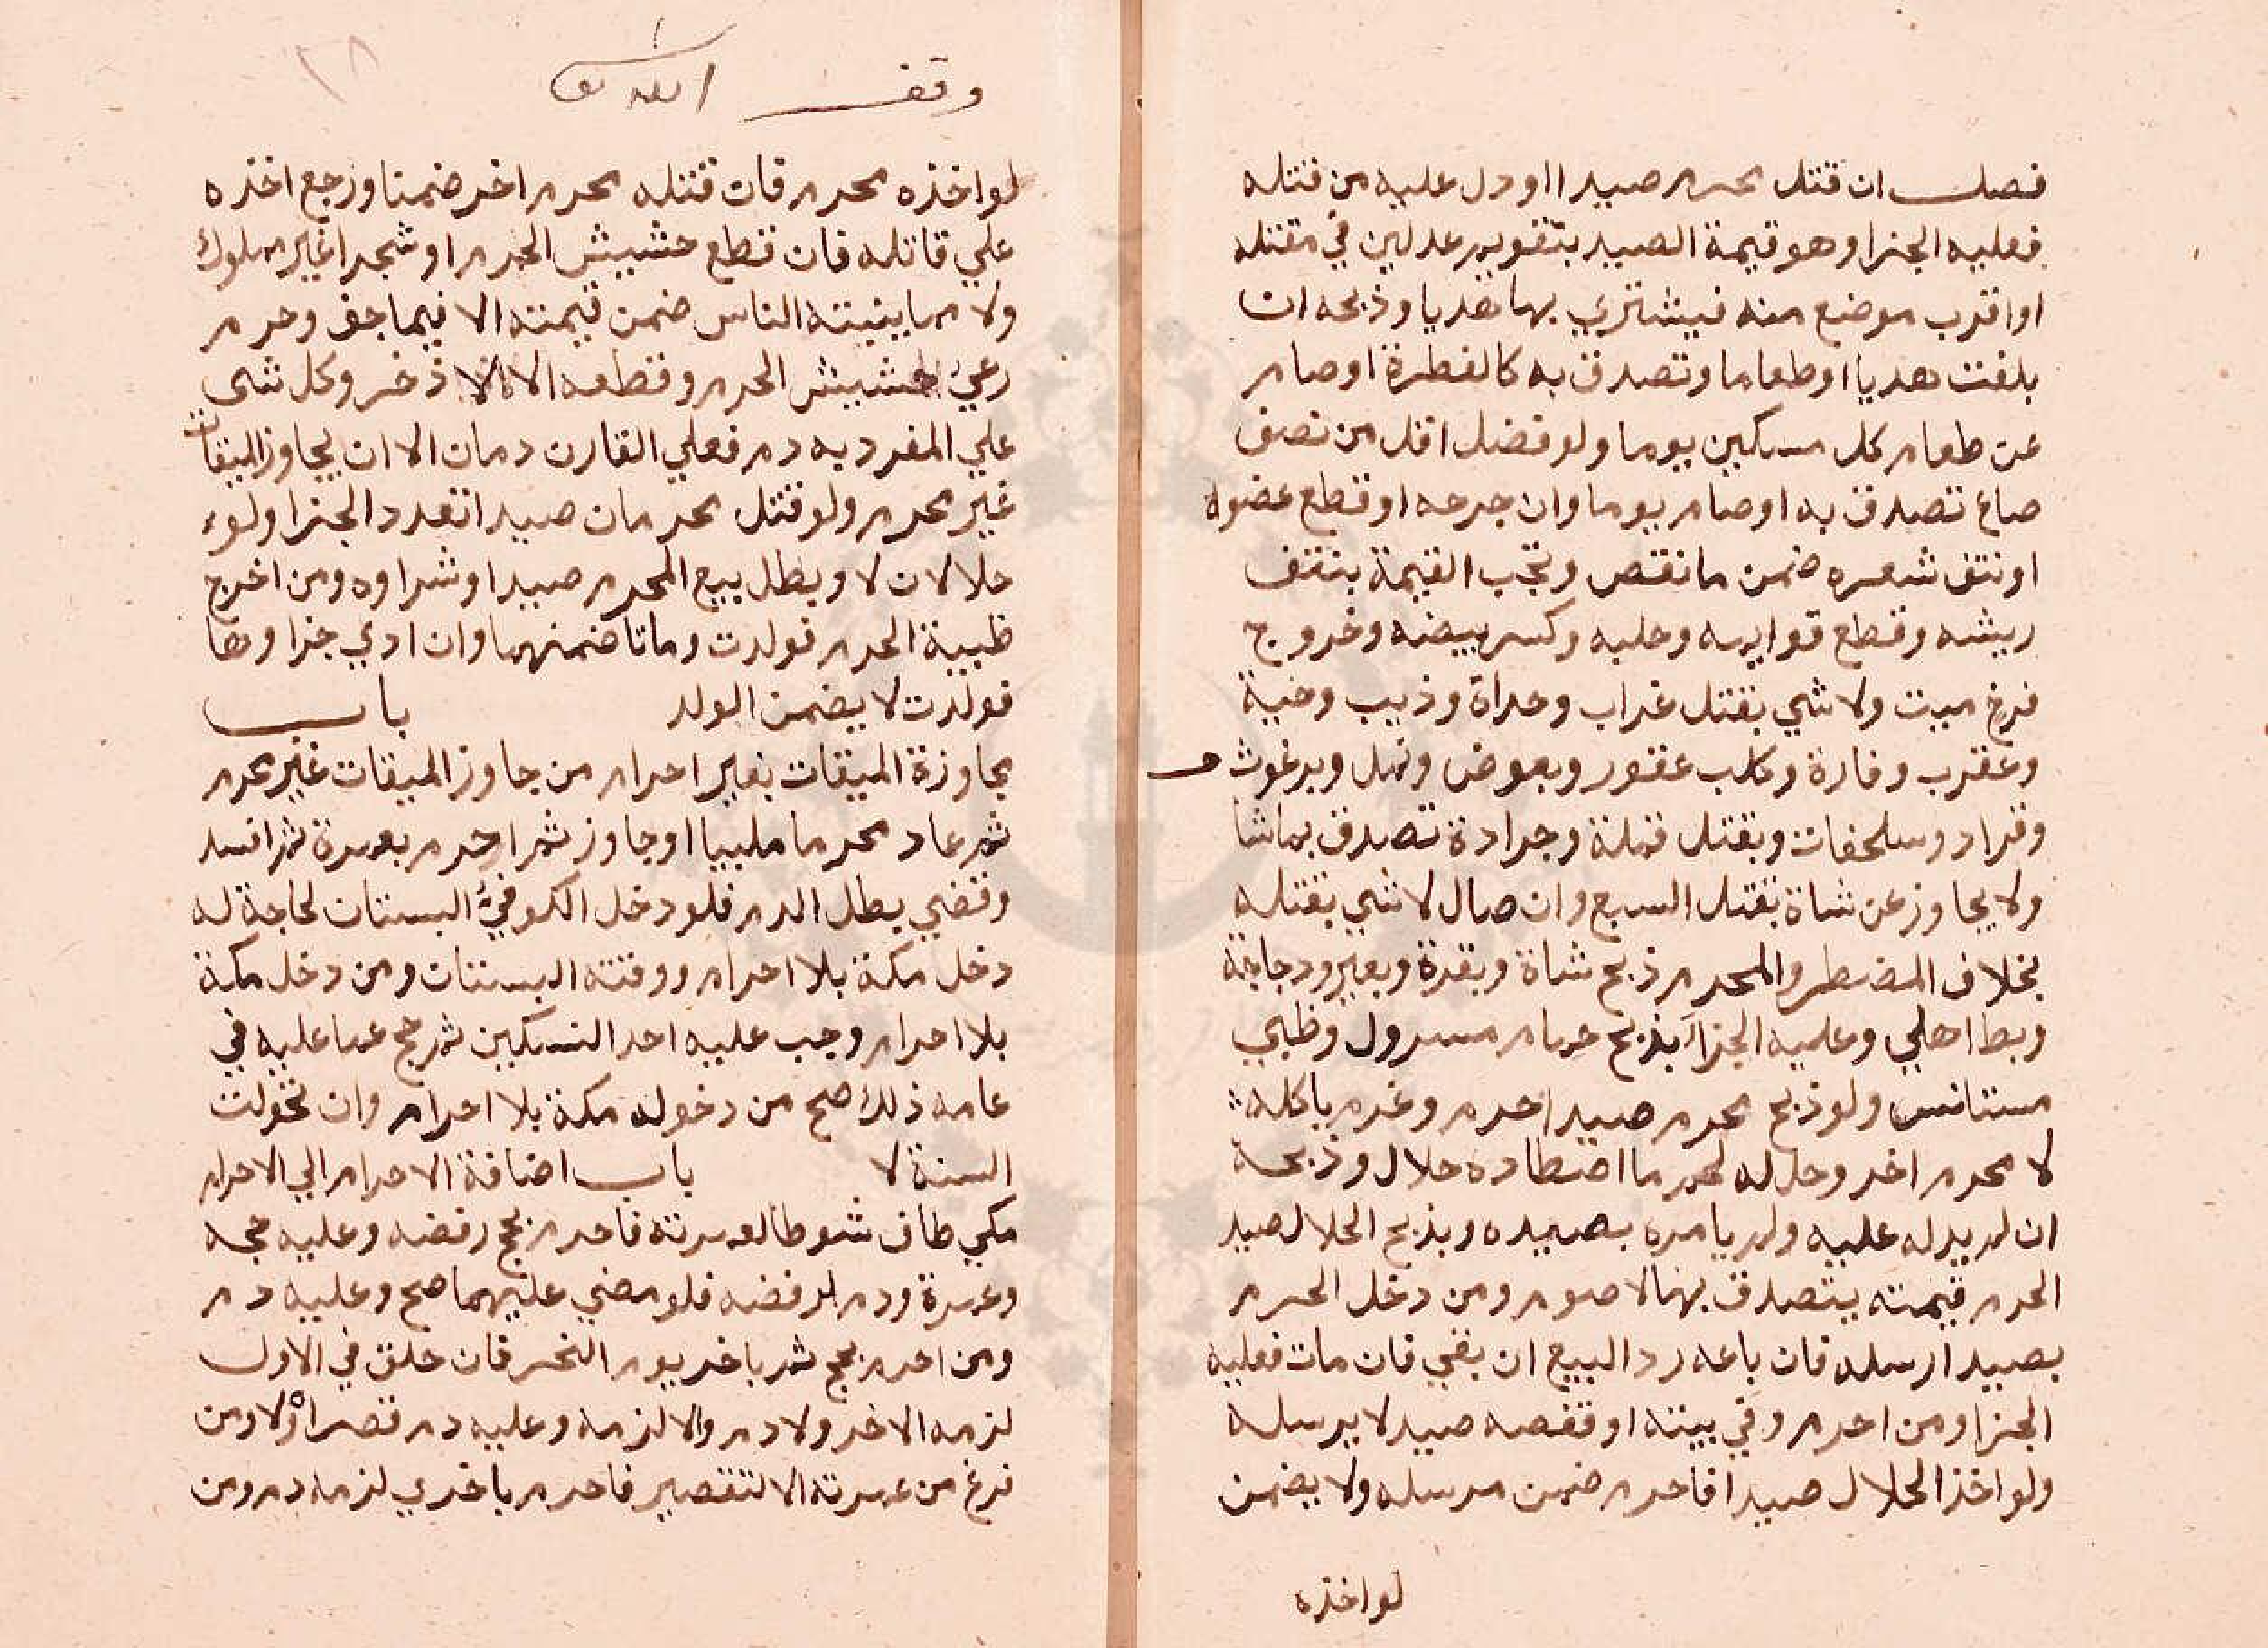 فصل ان قتل محرم صيدا او دل عليه من قتله
فعليه الجزا وهو قيمة الصيد بتقويم عدلين في مقتله
او اقرب موضع منه فيشتري بها هديا وذبحه ان
بلغت هديا او طعاما وتصدق به كالفطرة او صام
عن طعام كل مسكين يوما ولو فضل اقل من نصف
صاع تصدق به او صام يوما وان جرحه او قطع عضوه
او نتف شعره ضمن ما نقص وتجب القيمة بنتف
ريشه وقطع قوايمه وحلبه وكسر بيضه وخروج
فرخ ميت ولا شي بقتل غراب وحداة وذيب وحية
وعقرب وفارة وكلب عقور وبعوض ونمل وبرغوث
وقراد وسلحفات وبقتل قملة وجرادة تصدق بما شا
ولا يجاوز عن شاة بقتل السبع وان صال لا شي بقتله
بخلاف المضطر والمحرم ذبح شاة وبقرة وبعير ودجاجة
وبط اهلي وعليه الجزا بذبح حمام مسرول وظبي
مستانس ولو ذبح محرم صيدا حرم وغرم باكله
لا محرم اخر وحل له لحم ما اصطاده حلال وذبحه
ان لم يدله عليه ولم يامره بصيده وبذبح الحلال صيد
الحرم قيمته يتصدق بها لا صوم ومن دخل الحرم
بصيد ارسله فان باعه رد البيع ان بقي فان مات فعليه
الجزا ومن احرم وفي بيته او قفصه صيد لا يرسله
ولو اخذ الحلال صيدا فاحرم ضمن مرسله ولا يضمن
لو اخذه
وقف الله
لو اخذه محرم فان قتله محرم اخر ضمنا ورجع اخذه
علي قاتله فان قطع حشيش الحرم او شجرا غير مملوك
ولا مما ينبته الناس ضمن قيمته الا فيما جف وحرم
رعي حشيش الحرم وقطعه الا الاذخر وكل شي
علي المفرد به دم فعلي القارن دمان الا ان يجاوز الميقات
غير محرم ولو قتل محرمان صيدا تعدد الجزا ولو
حلالان لا وبطل بيع المحرم صيدا وشراوه ومن اخرج
ظبية الحرم فولدت وماتا ضمنهما وان ادي جزاوها
فولدت لا يضمن الولد باب
مجاوزة الميقات بغير احرام من جاوز الميقات غير محرم
ثم عاد محرما ملبيا او جاوز ثم احرم بعمرة ثم افسد
وقضي بطل الدم فلو دخل الكوفي البستان لحاجة له
دخل مكة بلا احرام ووقته البستان ومن دخل مكة
بلا احرام وجب عليه احد النسكين ثم حج عما عليه في
عامه ذلك صح من دخوله مكة بلا احرام وان تحولت
السنة لا باب اضافة الاحرام الي الاحرام
مكي طاف شوطا لعمرته فاحرم بحج رفضه وعليه حجه
وعمرة ودم لرفضه فلو مضي عليهما صح وعليه دم
ومن احرم بحج ثم باخر يوم النحر فان حلق في الاول
لزمه الاخر ولا دم والا لزمه وعليه دم قصر او لا ومن
فرغ من عمرته الا لتقصير فاحرم باخري لزمه دم ومن